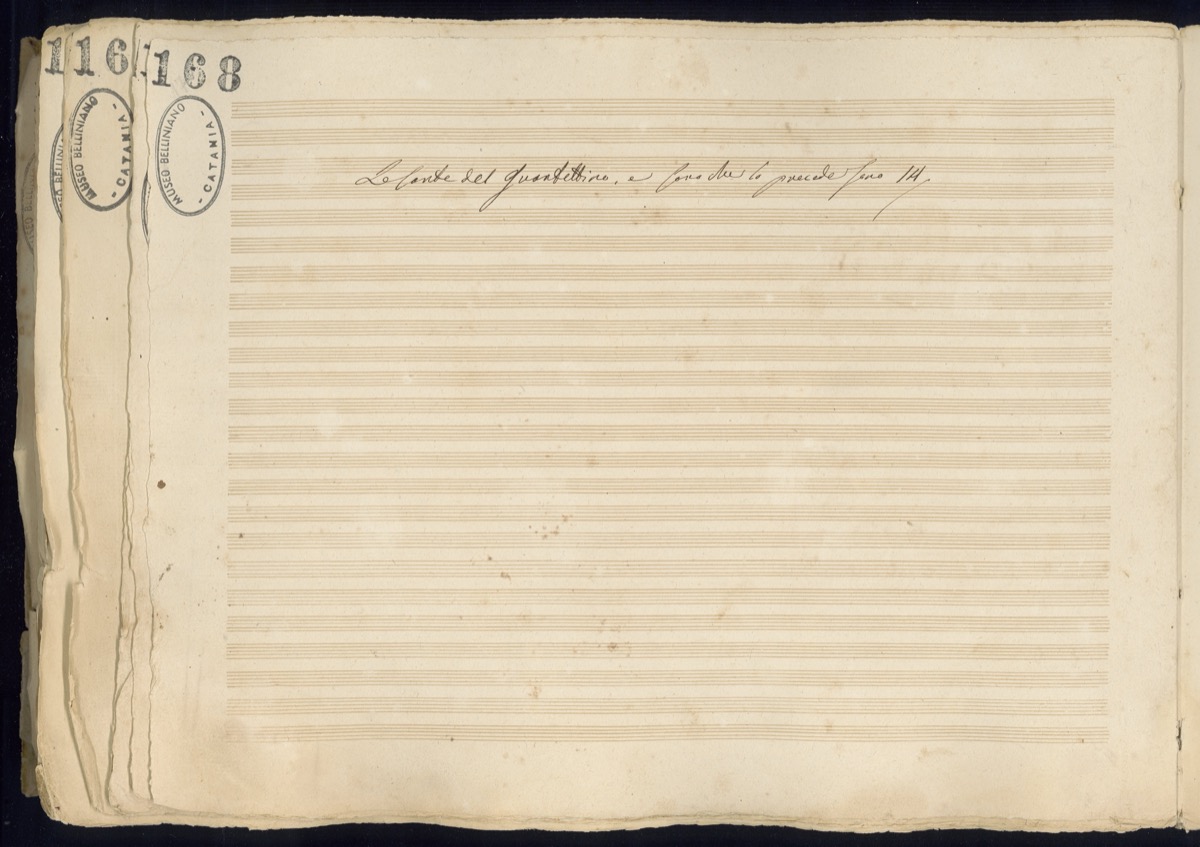 1
116
168
BELLINI
MUSEO BELLINIANO
- CATANIA -
MUSEO BELLINIANO
- CATANIA -
Le carte del Quartettino, e scena che lo precede sono 14